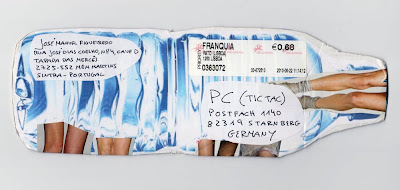 JOSÉ MANUEL FIGUEIREDO
RUA JOSÉ DIAS COELHO, Nº4, CAVE D
TAPADA DAS MERCÊS
2725-552 MEM MARTINS
SINTRA - PORTUGAL
FRANQUIA
RATO LISBOA
1250 LISBOA
0363072
€0,68
PC (TIC TAC)
POSTFACH 1140
82319 STARNBERG
GERMANY